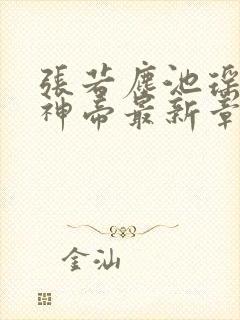 張若塵池瑤
神帝最新章
金汕